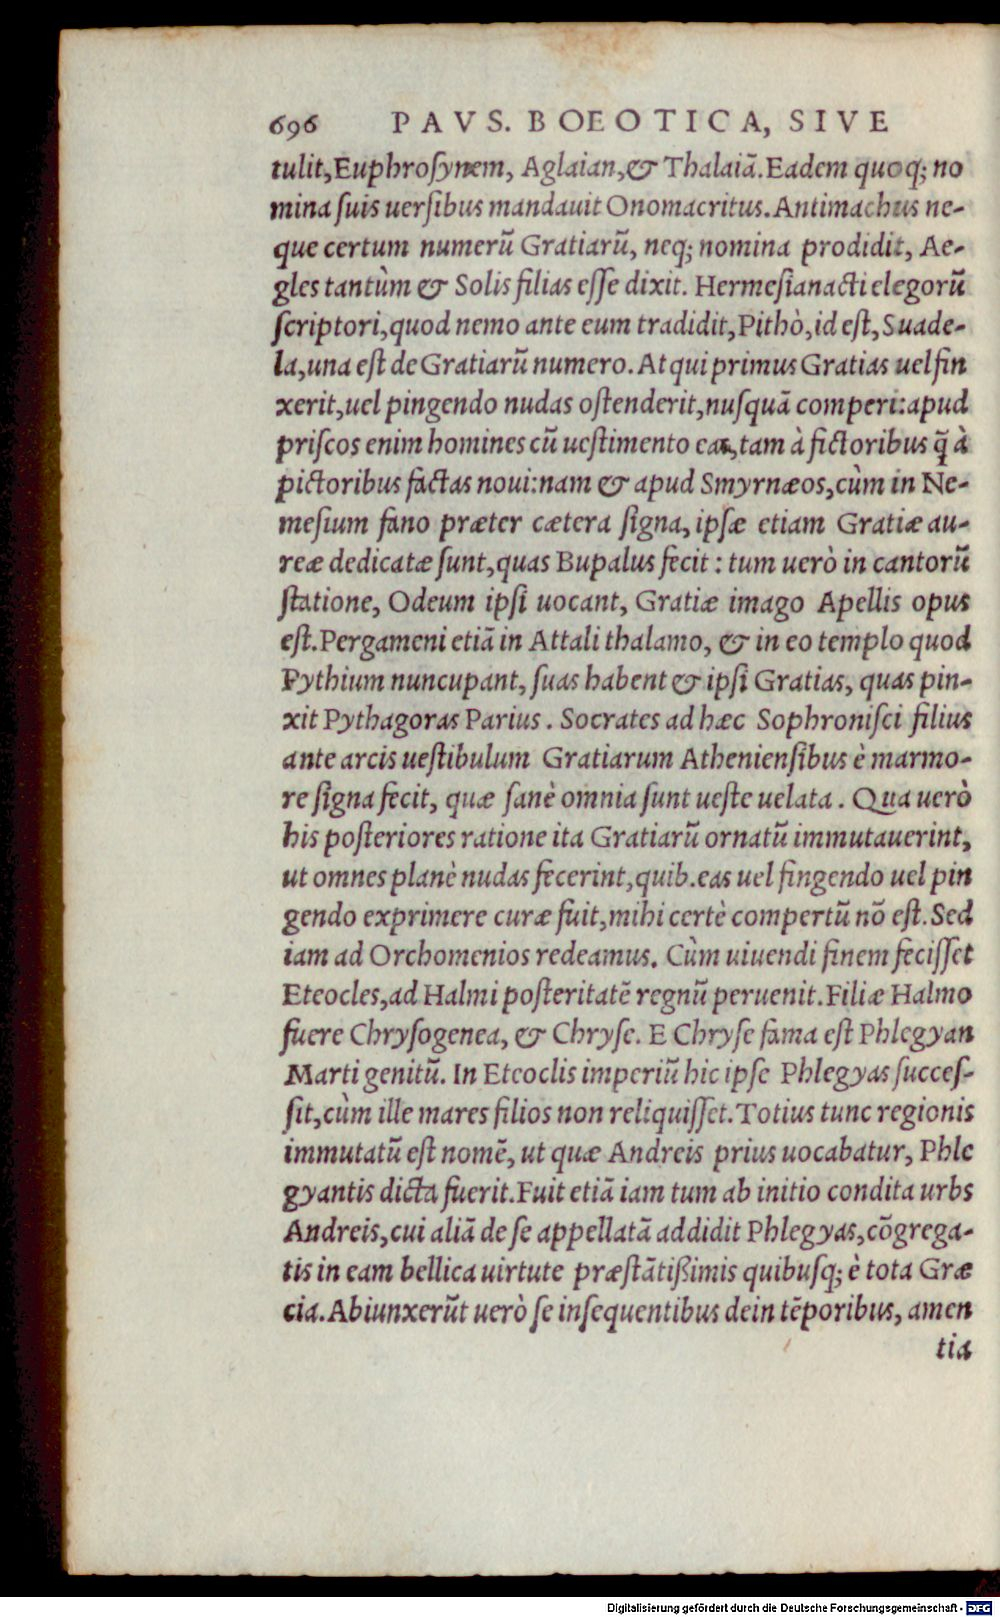 696 PAVS. BOEOTICA, SIVE
tulit, Euphroſynem, Aglaian, & Thalaiã. Eadem quoq; no
mina ſuis uerſibus mandauit Onomacritus. Antimachus ne-
que certum numerũ Gratiarũ, neq; nomina prodidit, Ae-
gles tantùm & Solis filias eſſe dixit. Hermeſianacti elegorũ
ſcriptori, quod nemo ante eum tradidit, Pithò, id eſt, Suade-
la, una eſt de Gratiarũ numero. At qui primus Gratias uel fin
xerit, uel pingendo nudas oſtenderit, nuſquã comperi: apud
priſcos enim homines cũ ueſtimento eas, tam à fictoribus q̃ à
pictoribus factas noui: nam & apud Smyrnæos, cùm in Ne-
meſium fano præter cætera ſigna, ipſæ etiam Gratiæ au-
reæ dedicatæ ſunt, quas Bupalus fecit: tum uerò in cantorũ
ſtatione, Odeum ipſi uocant, Gratiæ imago Apellis opus
eſt. Pergameni etiã in Attali thalamo, & in eo templo quod
Pythium nuncupant, ſuas habent & ipſi Gratias, quas pin-
xit Pythagoras Parius. Socrates ad hæc Sophroniſci filius
ante arcis ueſtibulum Gratiarum Athenienſibus è marmo-
re ſigna fecit, quæ ſanè omnia ſunt ueſte uelata. Qua uerò
his poſteriores ratione ita Gratiarũ ornatũ immutauerint,
ut omnes planè nudas fecerint, quib. eas uel fingendo uel pin
gendo exprimere curæ fuit, mihi certè compertũ nõ eſt. Sed
iam ad Orchomenios redeamus. Cùm uiuendi finem feciſſet
Eteocles, ad Halmi poſteritatẽ regnũ peruenit. Filiæ Halmo
fuere Chryſogenea, & Chryſe. E Chryſe fama eſt Phlegyan
Marti genitũ. In Eteoclis imperiũ hic ipſe Phlegyas ſucceſ-
ſit, cùm ille mares filios non reliquiſſet. Totius tunc regionis
immutatũ eſt nomẽ, ut quæ Andreis prius uocabatur, Phle
gyantis dicta fuerit. Fuit etiã iam tum ab initio condita urbs
Andreis, cui aliã de ſe appellatã addidit Phlegyas, cõgrega-
tis in eam bellica uirtute præſtãtißimis quibuſq; è tota Græ
cia. Abiunxerũt uerò ſe inſequentibus dein tẽporibus, amen
tia
Digitalisierung gefördert durch die Deutsche Forschungsgemeinschaft - DFG